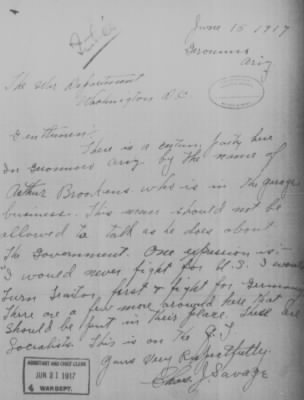 June 15 1917
Geronimo
Ariz
The War Department
Washington D.C.
Gentlemen
There is a certain party here
In Geronimo Ariz. by the name of
Arthur Brookens who is in the garage
business. This man should not be
allowed to talk as he does about
The Government. One expression is:
I would never fight for U.S. I would
turn traitor first & fight for Germany
There are a few more around here that
should be put in their place. These are
Socialists. This is on the Q.T.
Yours Very Respectfully
Chas. J Savage
ASSISTANT AND CHIEF CLERK
JUN 21 1917
4 WAR DEPT.